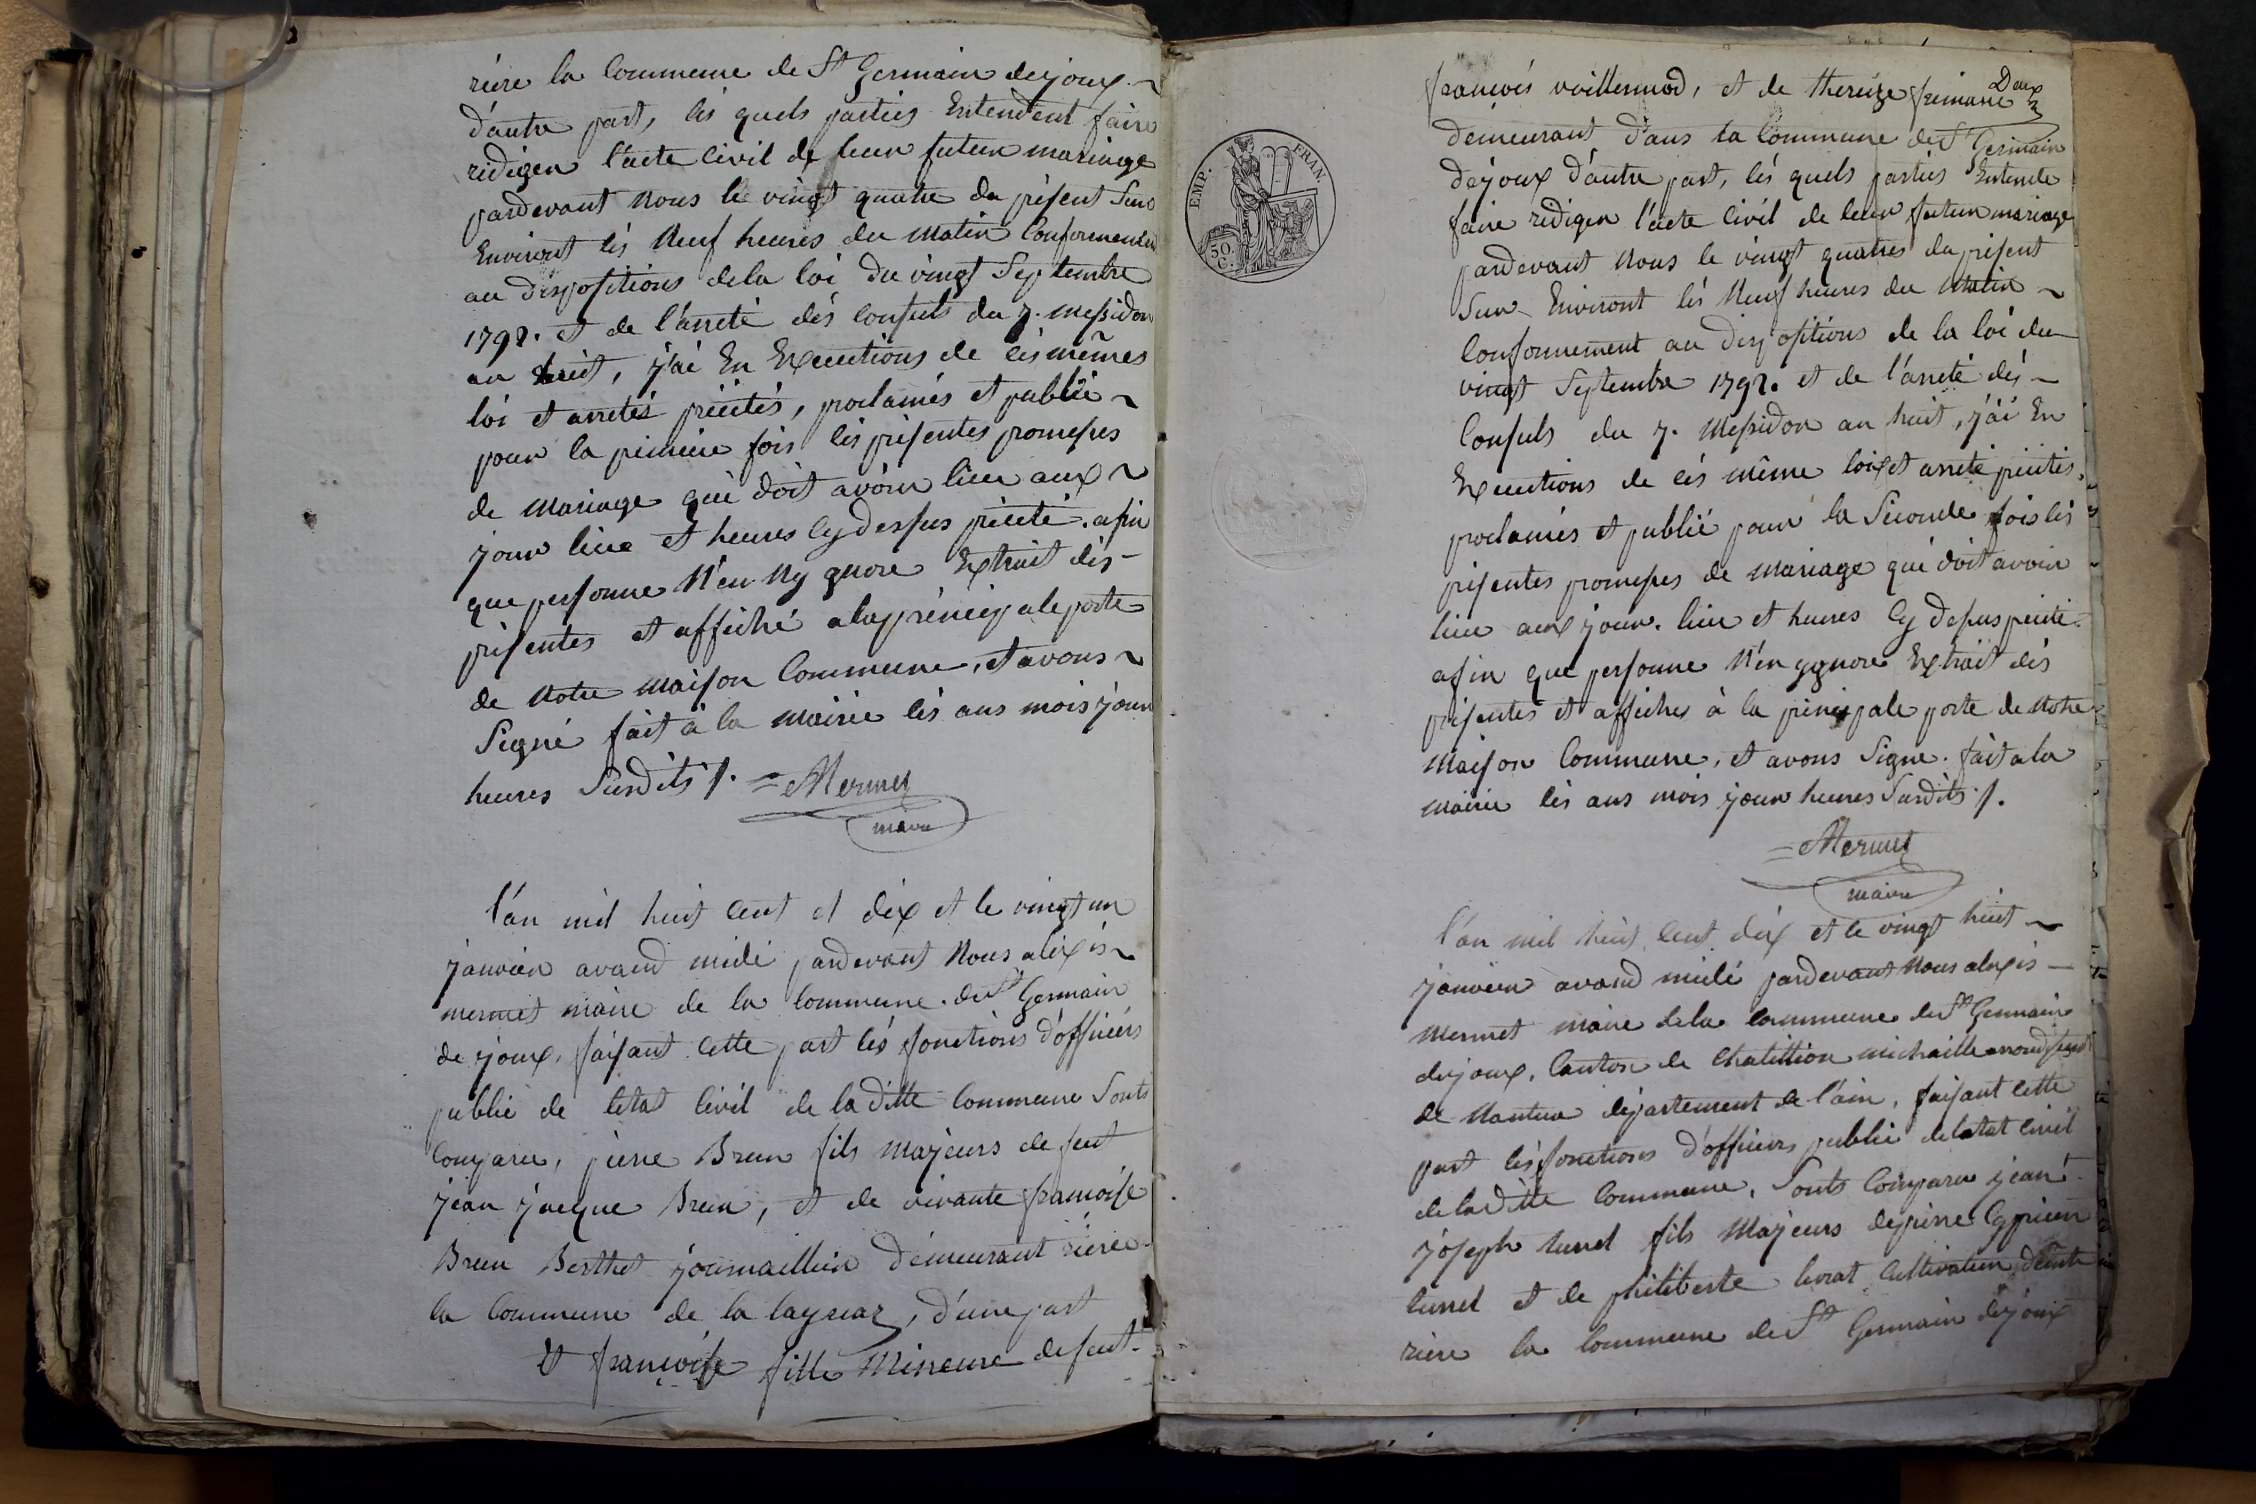 rière la Commune de St Germain dejoux. ~
d'autre part, lés quels parties Entendent faire
rédiger l'acte Civil de leur futur mariage
pardevant Nous le vingt quatre du présent Sur
Environt lés Neuf heures du matin Conformement
au dispositions dela loi du vingt Septembre
1792. et de l'arreté dés Consuls du 7. messidor
an huit, j'ai En Executions de cés mêmes
loi et arretés précités, proclamés et publié ~
pour la premiere fois lés présentes promesses
de Mariage qui doit avoir lieu aux ~
jour lieu et heures Cy dessus précité. afin
que personne N'en Ny gnore Extrait dés -
présentes et affiché a la principale porte
de Notre Maison Commune, et avons ~
Signé fait à la Mairie lés ans mois jour
heures Susdits /. = Mermet
maire
l'an mil huit Cent et dix et le vingt un
janvier avand midi pardevant Nous alexis ~
mermet maire de la Commune. de St Germain
de joux, faisant Cette part lés fonctions d'officiérs
publié de létat Civil de la ditte Commune Sonts
Comparu, pierre Brun fils Majeurs de feut
jean jacque Brun, et de vivante francoise
Brun Berthet journaillier demeurant rière
la Commune de la layriaz, d'une part
Et francoise fille Mineure de feut -
Deux
francois vuillermod, et de thereize
demeurant dans la Commune de St Germain
déjoux d'autre part, lés quels parties Entende
faire rédiger l'acte Civil de leur futur mariage
pardevant Nous le vingt quatres du présent
Sur Environt lés Neuf heures du Matin ~
Conformement au dispositions de la loi du
vingt Septembre 1792. et de l'arreté dés ~
Consuls du 7. Messidor an huit, j'ai En
Executions de cés même loix et arreté précités,
proclamés et publié pour la Seconde fois lés
présentes promesses de Mariage qui doit avoir
lieu aux jour. lieu et heures Cy dessus précité.
afin que personne N'en ygnore Extrait dés
présentes et affiches à la principale porte de Notre
Maison Commune, et avons Signe. fait a la
mairie lés ans mois jour heures Susdits /.
= Mermet
maire
l'an mil huit Cent dix et le vingt huit ~
janvier avand midi pardevant Nous alexis -
Mermet maire dela Commune de St Germain
dejoux, Canton de Chatillion michaille arrondissement
de Nantua département de l'ain, faisant Cette
part lés fonctions d'officiers publié de létat Civil
de la ditte Commune, Sonts Comparu jean
joseph tunet fils Majeurs de pierre Cyprien
tunet et de philiberte livrat Cultivateur
rière la Commune de St Germain dejoux
EMP. FRAN.
50 C.